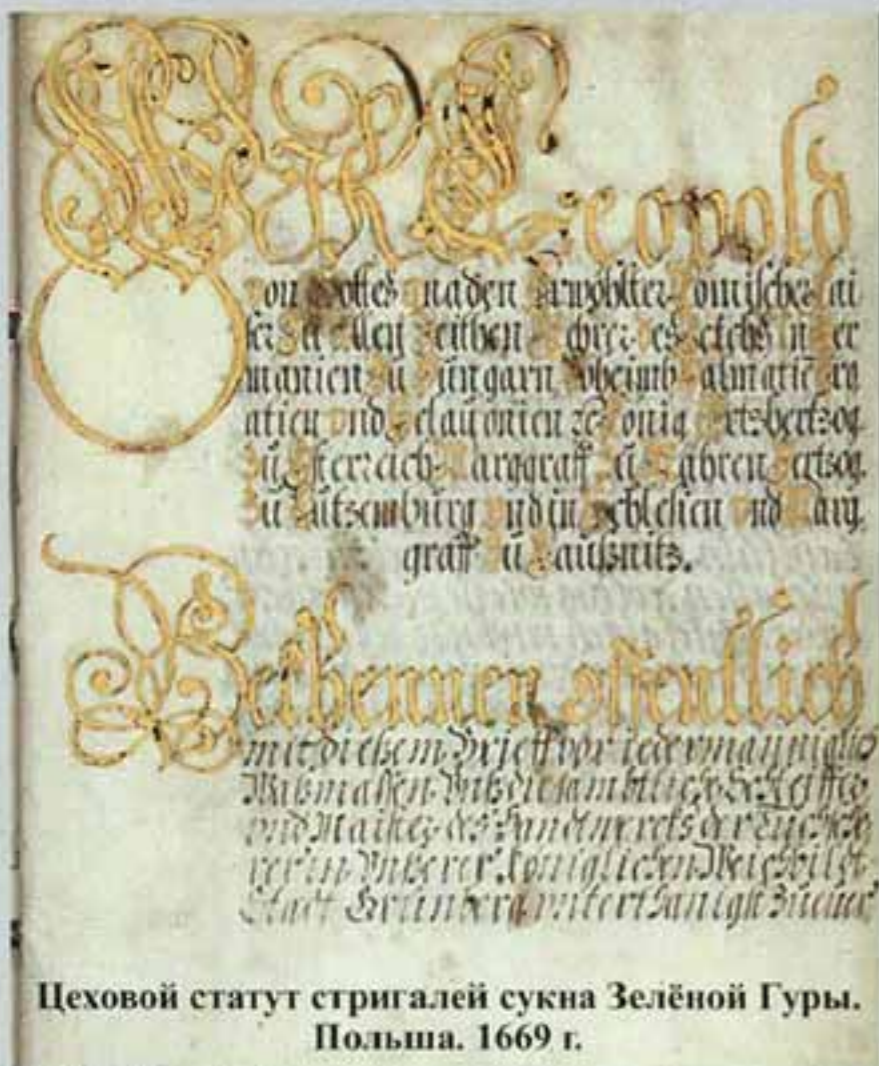 WIR Leopold
Von Gottes Gnaden Erwöhlter Römischer Kai
ser Zu allen Zeithen Mehrer des Reichs in Ger
manien Zu Hungarn Böheimb Dalmatiē Cro
atien Vnd Sclauonien ꝛc König Ertzhertzog
Zu Österreich Marggraff Zu Mahren Hertzog
Zu Lützemburg Vnd in Schlesien Vnd Marg
graff Zu Laußnitz.
Bekhennen offentlich
mit dießem Brieff vor iedermanniglich
Waßmaßen Vnß die sambtliche
vnd des Handtwercks der Tuchsche
rer in Vnserer Königlichen Weichbildt
Stadt Grünberg vnterthänigst
Цеховой статут стригалей сукна Зелёной Гуры.
Польша. 1669 г.